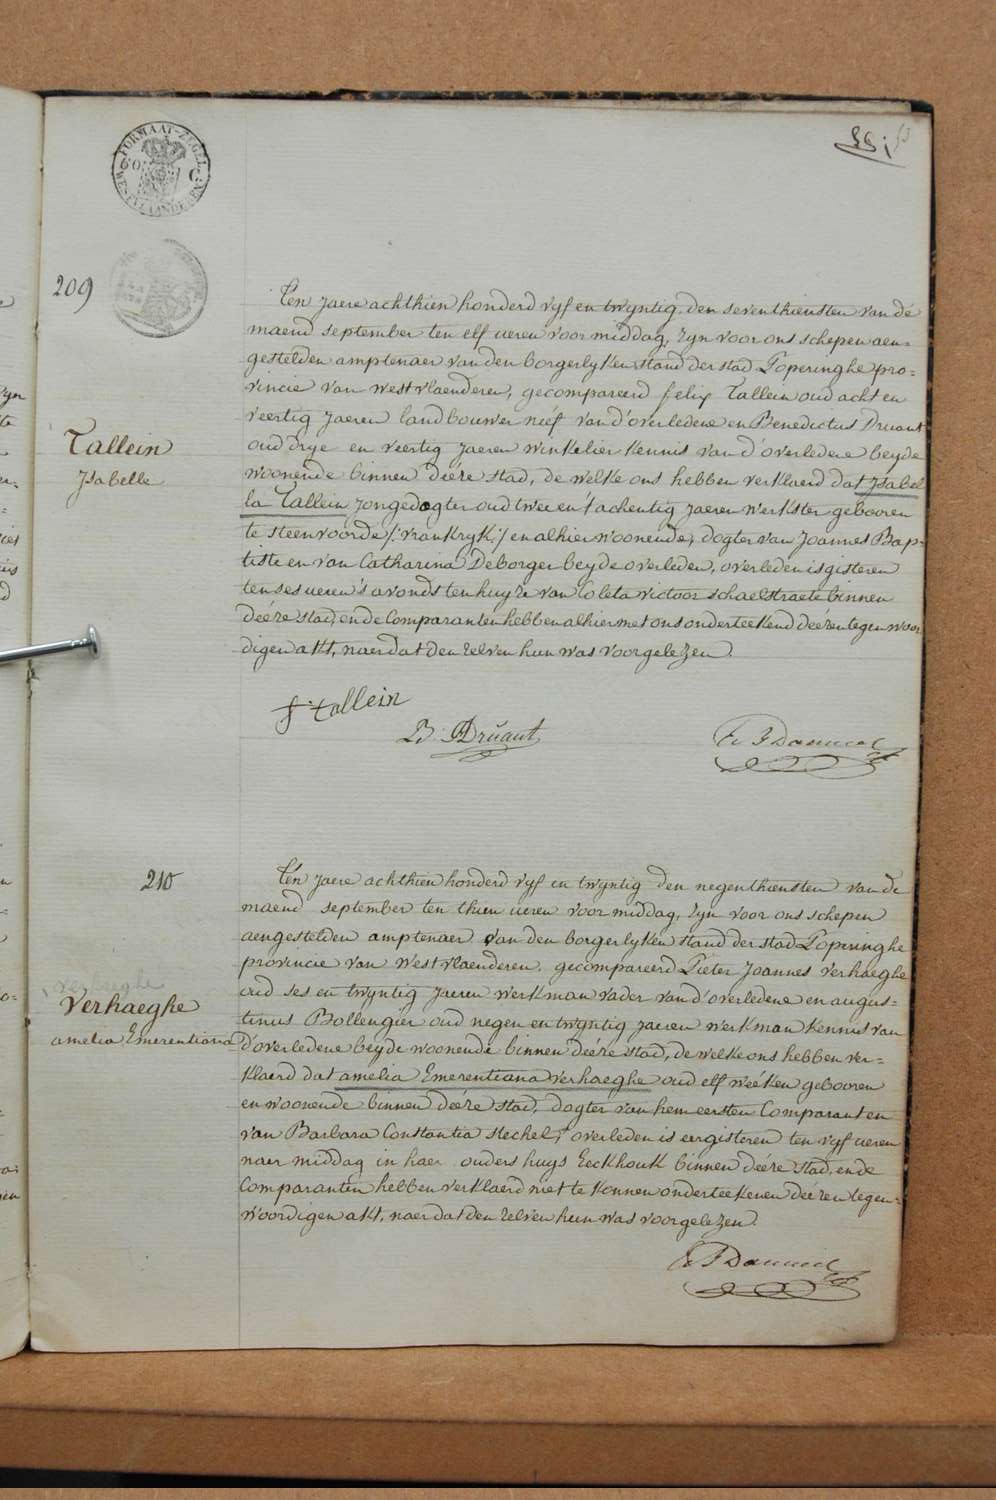 FORMAAT-ZEGEL
WEST-VLAANDEREN
209
Tallein
Isabelle
Ten jaere achthien honderd vyf en twyntig den seventhiensten van de
maend september ten elf ueren voor middag, zyn voor ons schepen aen=
gestelden amptenaer van den borgerlyken stand der stad Poperinghe pro=
vincie van westvlaenderen, gecompareerd felix Tallein oud acht en
veertig jaeren landbouwer neéf van d'overledene en Benedictus Druant
oud drye en veertig jaeren winkelier kennis van d'overledene beyde
woonende binnen deéze stad, de welke ons hebben verklaerd dat Isabel
la Tallein jongedogter oud twee en t'achentig jaeren werkster gebooren
te steenvoorde /: vrankryk :/ en alhier woonende, dogter van Joannes Bap=
tiste en van Catharina Deborger beyde overleden, overleden is gisteren
ten ses ueren 's avonds ten huyze van Coleta victoor schaelstraete binnen
deéze stad, en de Comparanten hebben alhier met ons onderteekend deézen tegenwoor
digen akt, naer dat den zelven hun was voorgelezen.
f: tallein
B: Druant
210
Verhaeghe
amelia Emerentiana
Ten jaere achthien honderd vyf en twyntig den negenthiensten van de
maend september ten thien ueren voor middag, zyn voor ons schepen
aengestelden amptenaer van den borgerlyken stand der stad Poperinghe
provincie van westvlaenderen, gecompareerd Pieter Joannes verhaeghe
oud ses en twyntig jaeren werkman vader van d'overledene en augus=
tinus Bollengier oud negen en twyntig jaeren werkman kennis van
d'overledene beyde woonende binnen deéze stad, de welke ons hebben ver=
klaerd dat amelia Emerentiana verhaeghe oud elf weéken gebooren
en woonende binnen deéze stad, dogter van hem eersten Comparant en
van Barbara Constantia stechel, overleden is eergisteren ten vyf ueren
naer middag in haer ouders huys Eeckhouk binnen deéze stad, en de
Comparanten hebben verklaerd niet te konnen onderteekenen deézen tegen=
woordigen akt, naer dat den zelven hun was voorgelezen.